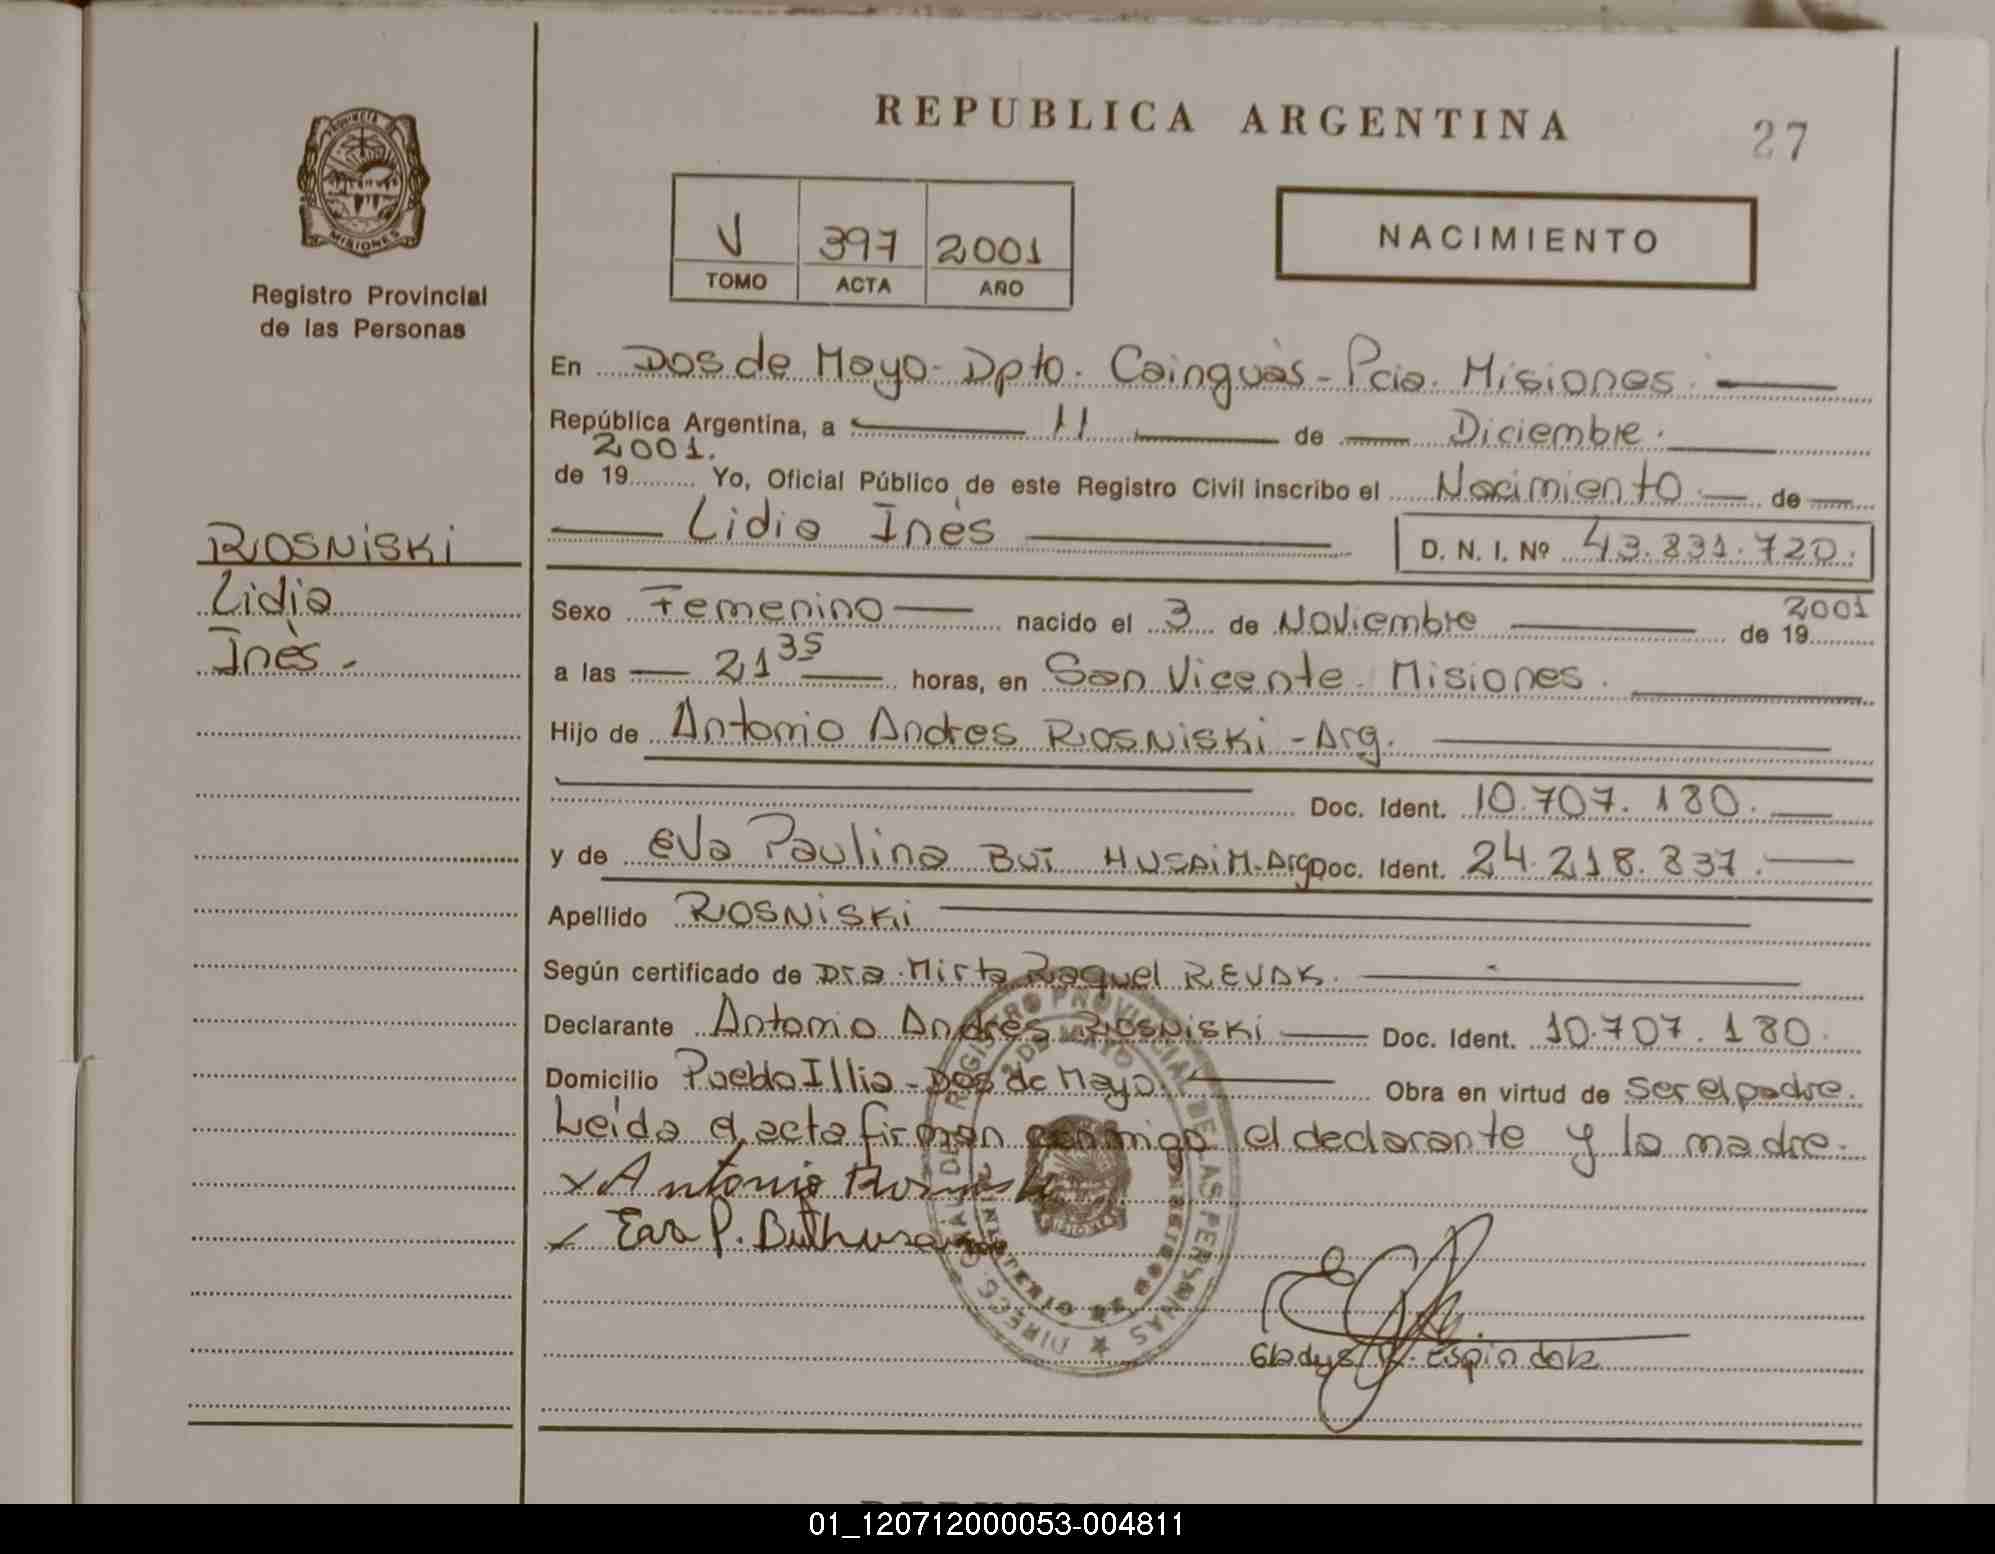 REPUBLICA ARGENTINA
27
PROVINCIA DE
MISIONES
Registro Provincial
de las Personas
V 397 2001
TOMO ACTA AÑO
NACIMIENTO
En Dos de Mayo - Dpto. Cainguás - Pcia. Misiones.
República Argentina, a 11 de Diciembre.
2001.
de 19 Yo, Oficial Público de este Registro Civil inscribo el Nacimiento de
Lidia Inés D. N. I. Nº 43.831.720.
ROSNiSKi
Lidia
Inés.-
Sexo Femenino nacido el 3 de Noviembre de 19 2001
a las 21 35 horas, en San Vicente - Misiones.
Hijo de Antonio Andres ROSNiSKi - Arg.
Doc. Ident. 10.707.180.
y de Eva Paulina BUT HUSAiM - Arg Doc. Ident. 24.218.837.
Apellido ROSNiSKi
Según certificado de Dra. Mirta Raquel REVAK.
Declarante Antonio Andrés ROSNiSKi Doc. Ident. 10.707.180.
Domicilio Pueblo Illia - Dos de Mayo. Obra en virtud de ser el padre.
Leída el acta firman conmigo el declarante y la madre.
x Antonio Rosniski
Eva P. Buthusaim
Gladys Espindola
DIRECC. GRAL DE REGISTRO PROVINCIAL DE LAS PERSONAS
2 DE MAYO
MINISTERIO DE GOBIERNO
01_120712000053-004811